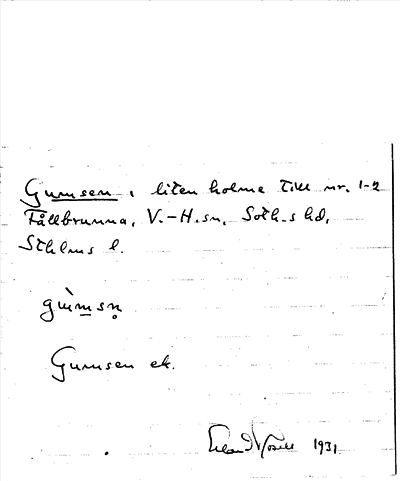 Gumsen, liten holme till nr. 1-2
Fållbrunna, V.-H. sn, Soth.s hd,
Sthlms l.
gùmsn̥
Gumsen ek.
1931